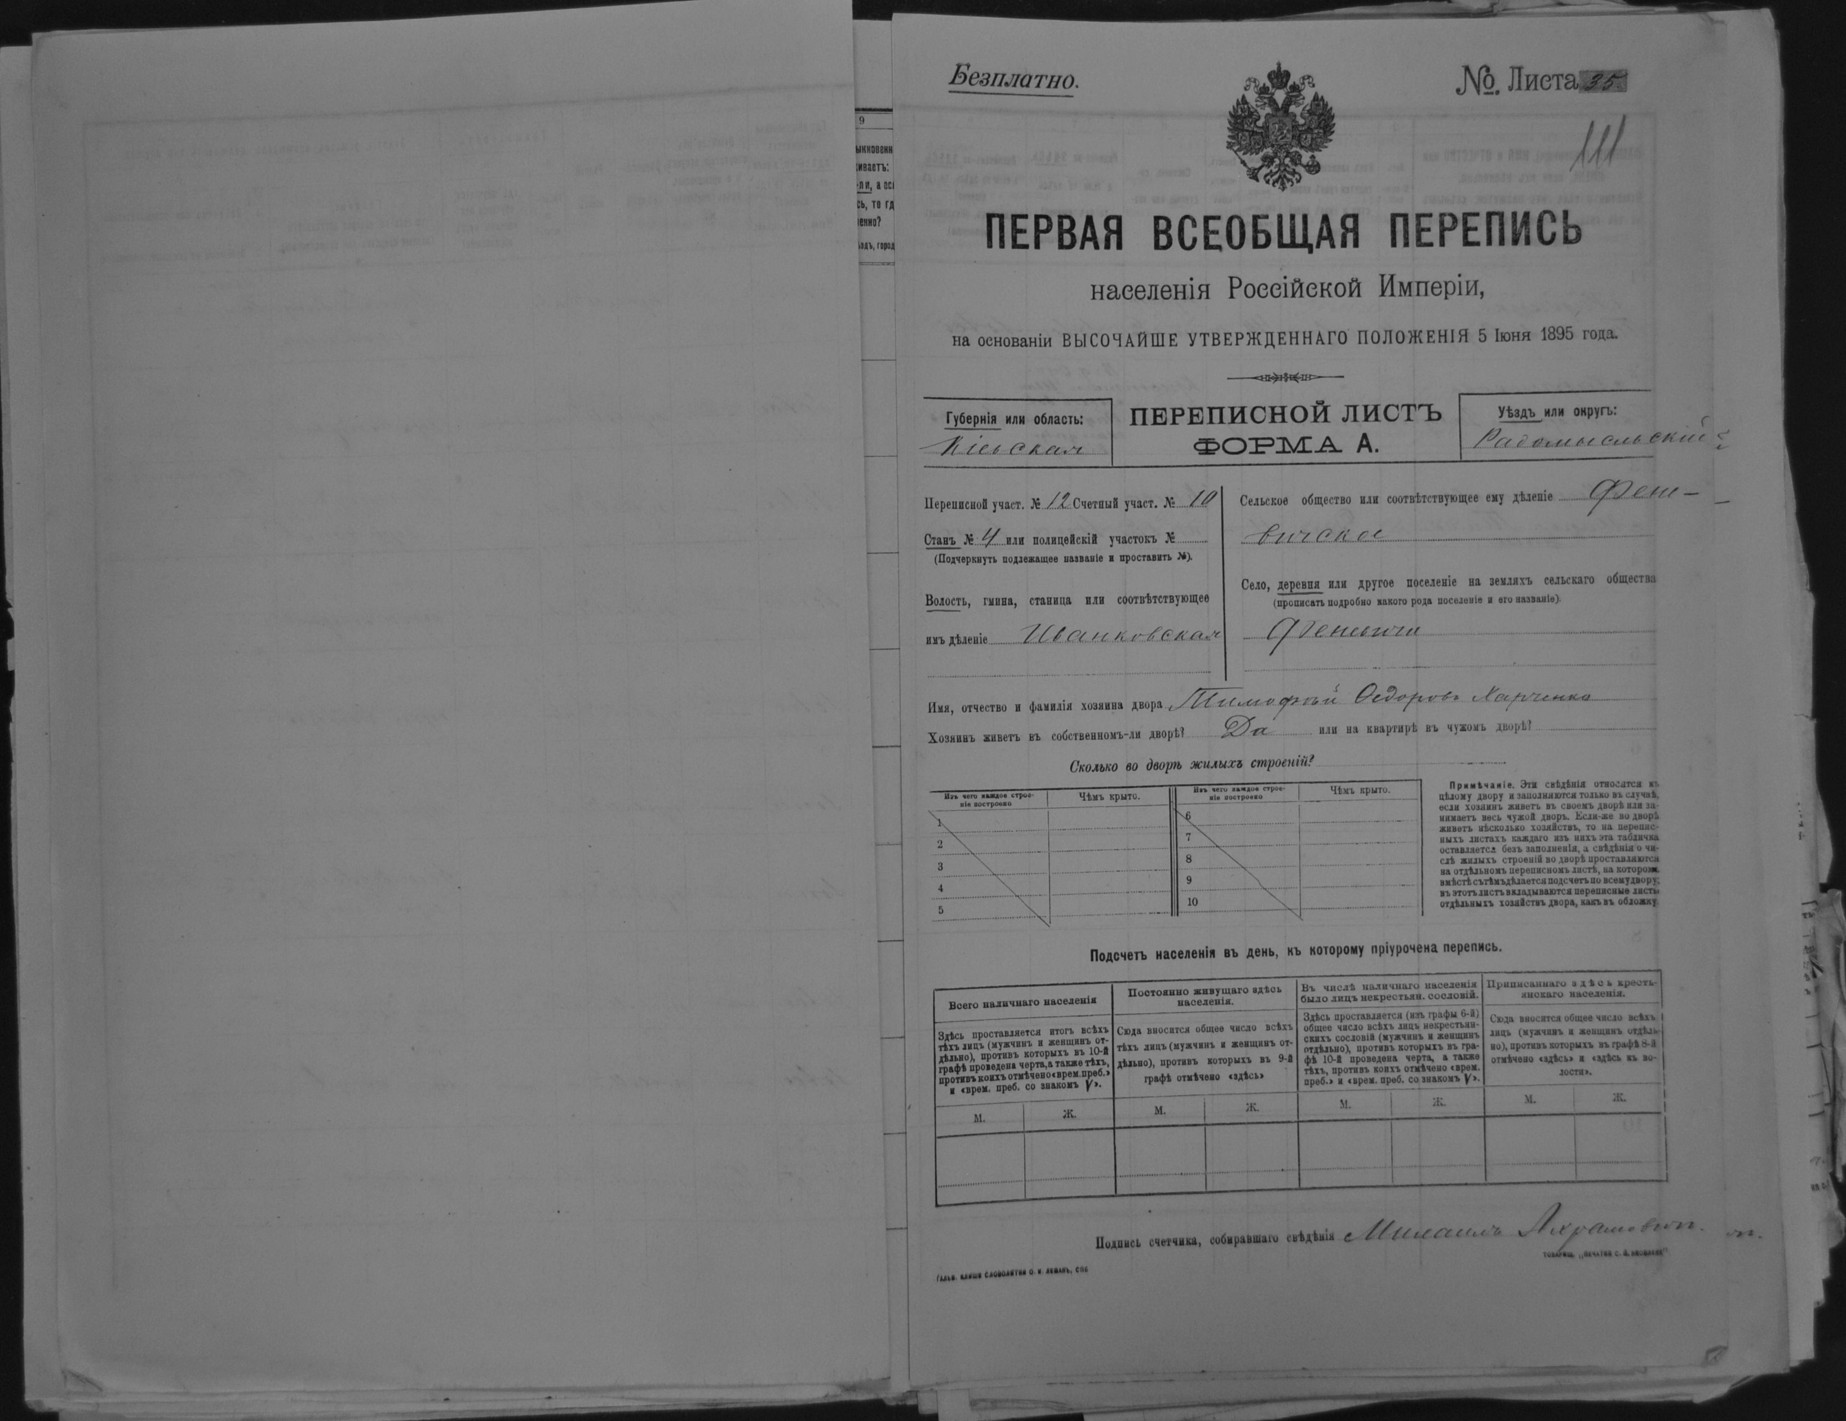 9
Безплатно.
№ Листа 35
111
ПЕРВАЯ ВСЕОБЩАЯ ПЕРЕПИСЬ
населенія Россійской Имперіи,
на основаніи ВЫСОЧАЙШЕ УТВЕРЖДЕННАГО ПОЛОЖЕНІЯ 5 Іюня 1895 года.
Губернія или область:
Кіевская
ПЕРЕПИСНОЙ ЛИСТЪ
ФОРМА А.
Уѣздъ или округъ:
Радомысльскій
Переписной участ. № 12 Счетный участ. № 10
Станъ № 4 или полицейскій участокъ №
(Подчеркнуть подлежащее названіе и проставить №).
Волость, гмина, станица или соотвѣтствующее
имъ дѣленіе Иванковская
Сельское общество или соотвѣтствующее ему дѣленіе Фене-
вичское
Село, деревня или другое поселеніе на земляхъ сельскаго общества
(прописать подробно какого рода поселеніе и его названіе).
Феневичи
Имя, отчество и фамилія хозяина двора Тимофѣй Федоровъ Харченко
Хозяинъ живетъ въ собственномъ-ли дворѣ? Да или на квартирѣ въ чужомъ дворѣ?
Сколько во дворѣ жилыхъ строеній?
Изъ чего каждое строе-
ніе построено
Чѣмъ крыто.
Изъ чего каждое строе-
ніе построено
Чѣмъ крыто.
1
2
3
4
5
6
7
8
9
10
Примѣчаніе. Эти свѣдѣнія относятся къ
цѣлому двору и заполняются только въ случаѣ,
если хозяинъ живетъ въ своемъ дворѣ или за-
нимаетъ весь чужой дворъ. Если-же во дворѣ
живетъ нѣсколько хозяйствъ, то на перепис-
ныхъ листахъ каждаго изъ нихъ эта табличка
оставляется безъ заполненія, а свѣдѣнія о чи-
слѣ жилыхъ строеній во дворѣ проставляются
на отдѣльномъ переписномъ листѣ, на которомъ
вмѣстѣ съ тѣмъ дѣлается подсчетъ по всему двору;
въ этотъ листъ вкладываются переписные листы
отдѣльныхъ хозяйствъ двора, какъ въ обложку.
Подсчетъ населенія въ день, къ которому пріурочена перепись.
Всего наличнаго населенія
Здѣсь проставляется итогъ всѣхъ
тѣхъ лицъ (мужчинъ и женщинъ от-
дѣльно), противъ которыхъ въ 10-й
графѣ проведена черта, а также тѣхъ,
противъ коихъ отмѣчено «врем. преб.»
и «врем. преб. со знакомъ V».
М. Ж.
Постоянно живущаго здѣсь
населенія.
Сюда вносится общее число всѣхъ
тѣхъ лицъ (мужчинъ и женщинъ от-
дѣльно), противъ которыхъ въ 9-й
графѣ отмѣчено «здѣсь»
М. Ж.
Въ числѣ наличнаго населенія
было лицъ некрестьян. сословій.
Здѣсь проставляется (изъ графы 6-й)
общее число всѣхъ лицъ некрестьян-
скихъ сословій (мужчинъ и женщинъ
отдѣльно), противъ которыхъ въ гра-
фѣ 10-й проведена черта, а также
тѣхъ, противъ коихъ отмѣчено «врем.
преб.» и «врем. преб. со знакомъ V».
М. Ж.
Приписаннаго здѣсь кресть-
янскаго населенія.
Сюда вносится общее число всѣхъ
лицъ (мужчинъ и женщинъ отдѣль-
но), противъ которыхъ въ графѣ 8-й
отмѣчено «здѣсь» и «здѣсь въ во-
лости».
М. Ж.
Подпись счетчика, собиравшаго свѣдѣнія Михаилъ